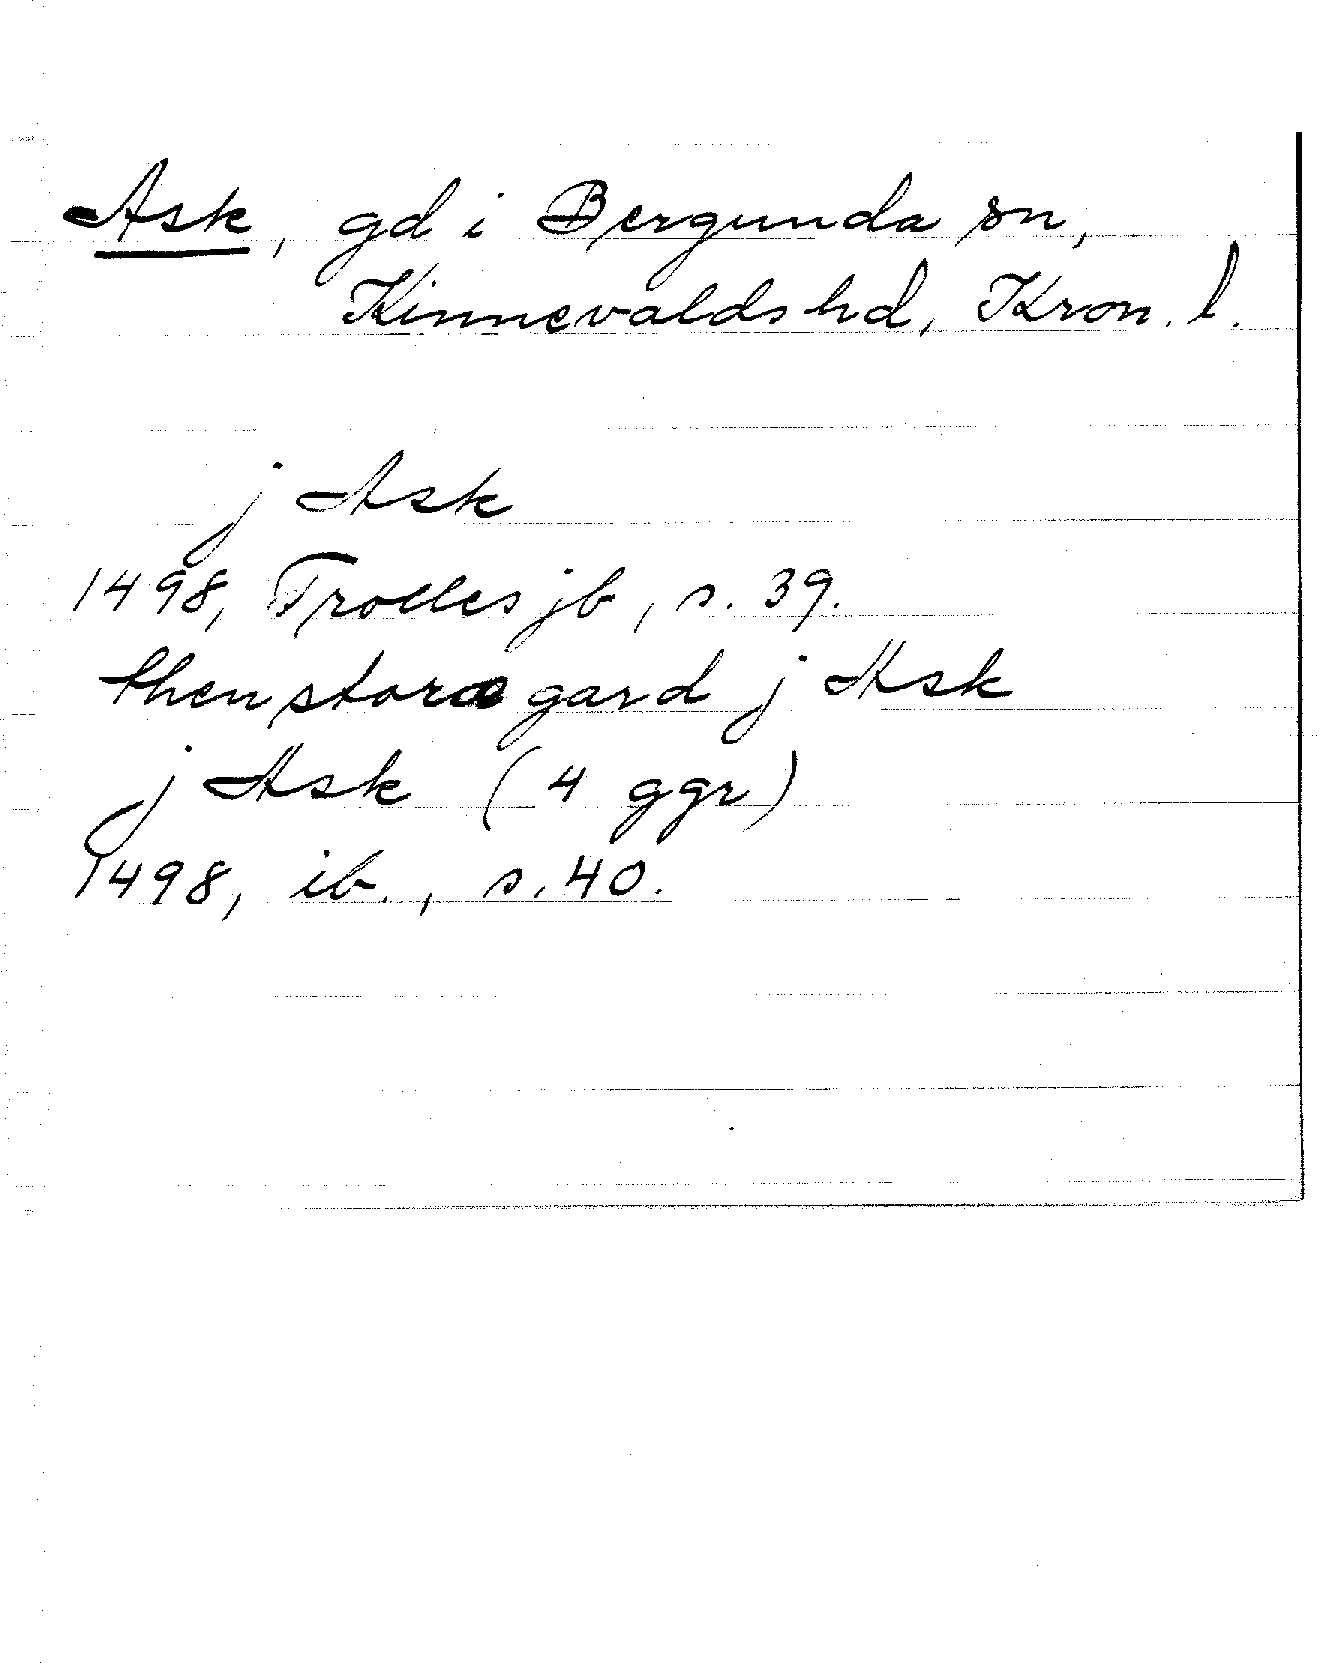 Ask, gd i Bergunda sn,
Kinnevalds hd, Kron. l.
j Ask
1498, Trolles jb, s. 39.
then storæ gard j Ask
j Ask (4 ggr)
1498, ib., s. 40.